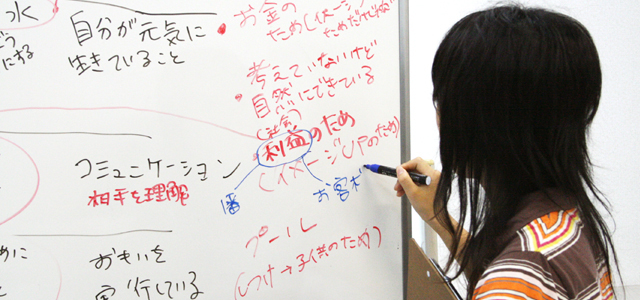 水
どう
にする
自分が元気に
生きていること
・お金の
ため(イメージ
ためだけじゃない
・考えていないけど
自然にできている
(社会)
・利益のため
(イメージUPのため)
コミュニケーション
相手を理解
お客が
プール
(しつけ→子供のため)
めに
おもいを
実行している